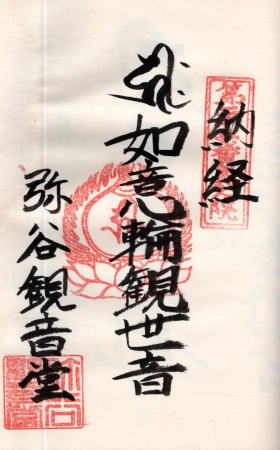 納経
如意輪観世音
弥谷観音堂